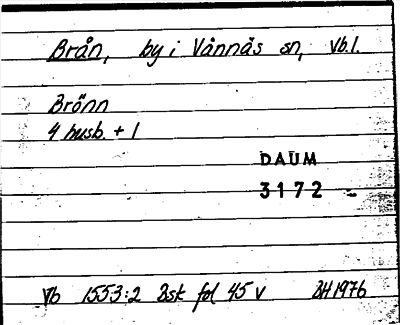 Brån, by i Vännäs sn, Vb.l.
Brönn
4 husb. + 1
DAUM
3172
Vb 1553:2 Bsk fol 45 v BH 1976